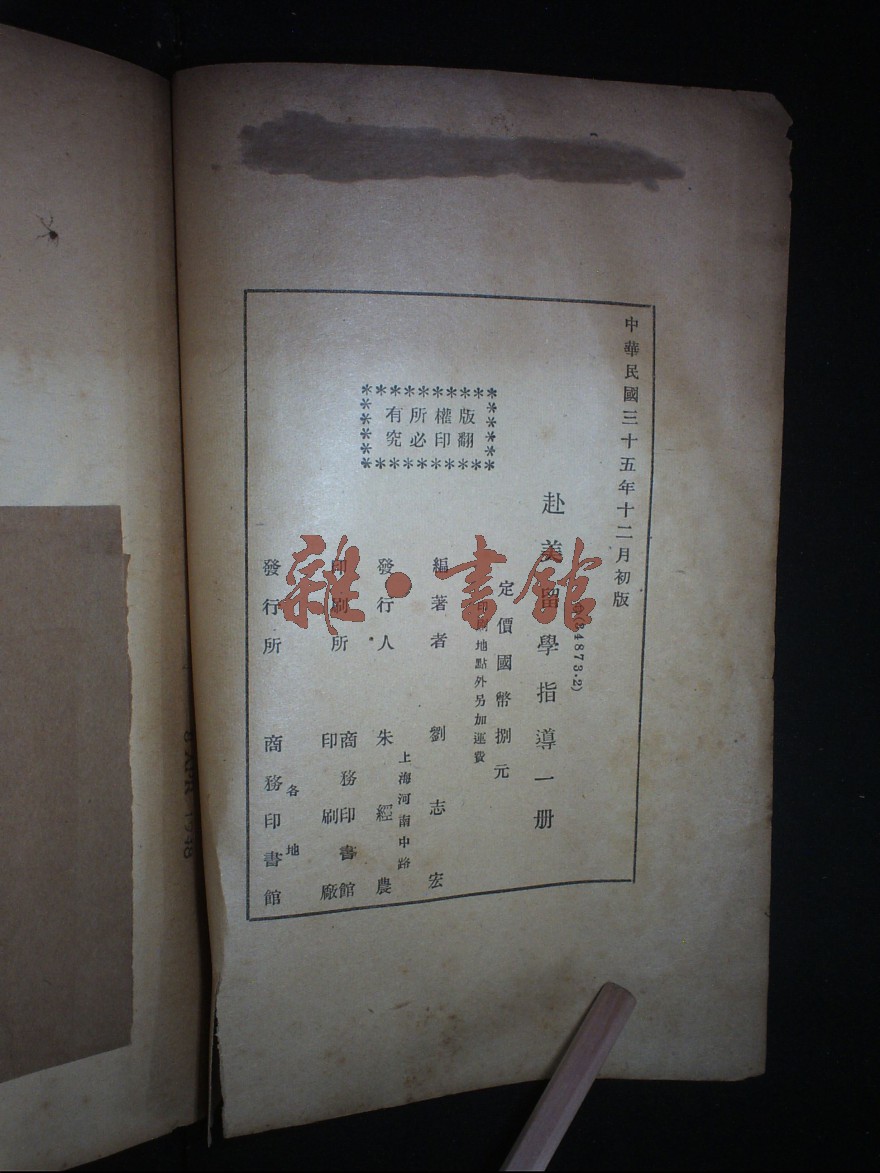 中華民國三十五年十二月初版
(34873·2)
赴美留學指導一册
定價國幣捌元
印刷地點外另加運費
版權所有
翻印必究
編著者 劉志宏
上海河南中路
發行人 朱經農
印刷所 商務印書館印刷廠
各地
發行所 商務印書館
雜·書館
APR 1948